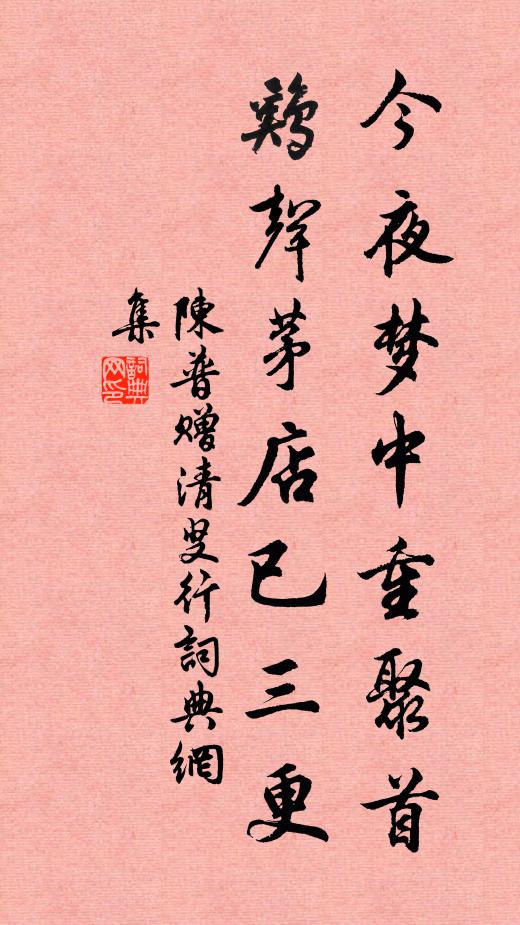 今夜梦中重聚首
鷄聲茅店已三更
陳普赠清叟行詞典網
集
詞典网印